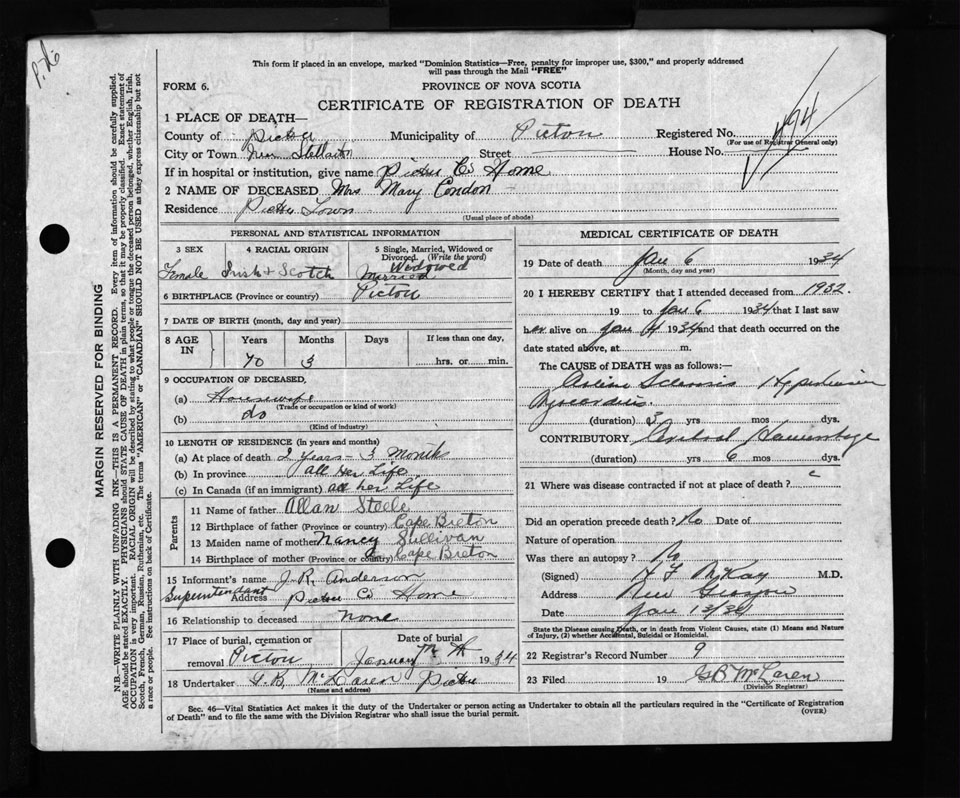 P. 216
This form if placed in an envelope, marked "Dominion Statistics—Free, penalty for improper use, $300," and properly addressed
will pass through the Mail "FREE"
FORM 6. PROVINCE OF NOVA SCOTIA
CERTIFICATE OF REGISTRATION OF DEATH
1 PLACE OF DEATH—
County of Pictou Municipality of Pictou Registered No. 494
(For use of Registrar General only)
City or Town Near Stellarton Street House No.
If in hospital or institution, give name Pictou Co Home
2 NAME OF DECEASED Mrs Mary Condon
Residence Pictou Town
(Usual place of abode)
PERSONAL AND STATISTICAL INFORMATION
3 SEX 4 RACIAL ORIGIN 5 Single, Married, Widowed or Divorced. (Write the word)
Female Irish & Scotch Married Widowed
6 BIRTHPLACE (Province or country) Pictou
7 DATE OF BIRTH (month, day and year)
8 AGE IN Years Months Days If less than one day,
70 3 hrs. or min.
9 OCCUPATION OF DECEASED,
(a) Housewife
(Trade or occupation or kind of work)
(b) do
(Kind of industry)
10 LENGTH OF RESIDENCE (in years and months)
(a) At place of death 2 years - 3 Months
(b) In province all Her Life
(c) In Canada (if an immigrant) all her Life
Parents
11 Name of father Allan Steele
12 Birthplace of father (Province or country) Cape Breton
13 Maiden name of mother Nancy Sullivan
14 Birthplace of mother (Province or country) Cape Breton
15 Informant's name J. R. Anderson
Superintendant Address Pictou Co Home
16 Relationship to deceased None
17 Place of burial, cremation or Date of burial
removal Picton January 1934
18 Undertaker G. B. McLaren Pictou
(Name and address)
MEDICAL CERTIFICATE OF DEATH
19 Date of death Jan 6 1934
(Month, day and year)
20 I HEREBY CERTIFY that I attended deceased from 1932
19 to Jan 6 1934 that I last saw
her alive on Jan 4 1934 and that death occurred on the
date stated above, at m.
The CAUSE of DEATH was as follows:
Arterio Sclerosis Hypertension
Myocarditis.
(duration) 3 yrs mos dys.
CONTRIBUTORY Cerebral Haemorrhage
(duration) yrs 6 mos dys.
21 Where was disease contracted if not at place of death?
Did an operation precede death? No Date of
Nature of operation
Was there an autopsy? No
(Signed) McKay M.D.
Address New Glasgow
Date Jan 13/34
State the Disease causing Death, or in death from Violent Causes, state (1) Means and Nature
of Injury, (2) whether Accidental, Suicidal or Homicidal.
22 Registrar's Record Number 9
23 Filed 19 G B McLaren
(Division Registrar)
Sec. 46—Vital Statistics Act makes it the duty of the Undertaker or person acting as Undertaker to obtain all the particulars required in the "Certificate of Registration
of Death" and to file the same with the Division Registrar who shall issue the burial permit. (OVER)
MARGIN RESERVED FOR BINDING
N.B.—WRITE PLAINLY WITH UNFADING INK—THIS IS A PERMANENT RECORD. Every item of information should be carefully supplied.
AGE should be stated EXACTLY. PHYSICIANS should STATE CAUSE OF DEATH in plain terms, so that it may be properly classified. Exact statement of
OCCUPATION is very important. RACIAL ORIGIN will be described by stating to what people or tongue the deceased person belonged, whether English, Irish,
Scotch, French, German, Russian, Ruthenian, etc. The terms "AMERICAN" or "CANADIAN" SHOULD NOT BE USED as they express citizenship but not
a race or people. See instructions on back of Certificate.